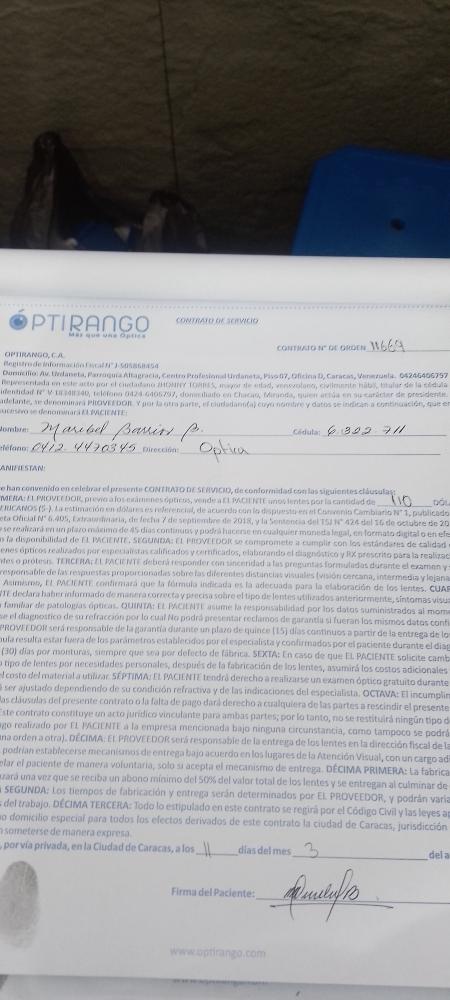 OPTIRANGO
Más que una Óptica
CONTRATO DE SERVICIO
CONTRATO N° DE ORDEN 11669
OPTIRANGO, C.A.
Registro de Información Fiscal N° J-505868454
Domicilio: Av. Urdaneta, Parroquia Altagracia, Centro Profesional Urdaneta, Piso 07, Oficina D, Caracas, Venezuela. 04246406797
Representada en este acto por el ciudadano JHONNY TORRES, mayor de edad, venezolano, civilmente hábil, titular de la cédula
identidad N° V-18348340, teléfono 0424-6406797, domiciliado en Chacao, Miranda, quien actúa en su carácter de presidente.
adelante, se denominará PROVEEDOR. Y por la otra parte, el ciudadano(a) cuyo nombre y datos se indican a continuación, que en
sucesivo se denominará EL PACIENTE:
Nombre: Maribel Barrios B. Cédula: 6.322.711
eléfono: 0412.4470345 Dirección: Optica
ANIFIESTAN:
e han convenido en celebrar el presente CONTRATO DE SERVICIO, de conformidad con las siguientes cláusulas:
MERA: EL PROVEEDOR, previo a los exámenes ópticos, vende a EL PACIENTE unos lentes por la cantidad de 110 DÓL
ERICANOS ($-). La estimación en dólares es referencial, de acuerdo con lo dispuesto en el Convenio Cambiario N° 1, publicado
eta Oficial N° 6.405, Extraordinaria, de fecha 7 de septiembre de 2018, y la Sentencia del TSJ N° 424 del 16 de octubre de 20
se realizará en un plazo máximo de 45 días continuos y podrá hacerse en cualquier moneda legal, en formato digital o en efe
n la disponibilidad de EL PACIENTE. SEGUNDA: EL PROVEEDOR se compromete a cumplir con los estándares de calidad
enes ópticos realizados por especialistas calificados y certificados, elaborando el diagnóstico y RX prescrito para la realizac
ntes o prótesis. TERCERA: EL PACIENTE deberá responder con sinceridad a las preguntas formuladas durante el examen y
responsable de las respuestas proporcionadas sobre las diferentes distancias visuales (visión cercana, intermedia y lejana
Asimismo, EL PACIENTE confirmará que la fórmula indicada es la adecuada para la elaboración de los lentes. CUAR
TE declara haber informado de manera correcta y precisa sobre el tipo de lentes utilizados anteriormente, síntomas visu
familiar de patologías ópticas. QUINTA: EL PACIENTE asume la responsabilidad por los datos suministrados al mom
se el diagnostico de su refracción por lo cual No podrá presentar reclamos de garantía si fueran los mismos datos confi
PROVEEDOR será responsable de la garantía durante un plazo de quince (15) días continuos a partir de la entrega de lo
ula resulta estar fuera de los parámetros establecidos por el especialista y confirmados por el paciente durante el diag
(30) días por monturas, siempre que sea por defecto de fábrica. SEXTA: En caso de que EL PACIENTE solicite camb
tipo de lentes por necesidades personales, después de la fabricación de los lentes, asumirá los costos adicionales
l costo del material a utilizar. SÉPTIMA: EL PACIENTE tendrá derecho a realizarse un examen óptico gratuito durante
á ser ajustado dependiendo de su condición refractiva y de las indicaciones del especialista. OCTAVA: El incumplin
las cláusulas del presente contrato o la falta de pago dará derecho a cualquiera de las partes a rescindir el presente
Este contrato constituye un acto jurídico vinculante para ambas partes; por lo tanto, no se restituirá ningún tipo d
go realizado por EL PACIENTE a la empresa mencionada bajo ninguna circunstancia, como tampoco se podrá
na orden a otra). DÉCIMA: EL PROVEEDOR será responsable de la entrega de los lentes en la dirección fiscal de la
podrían establecerse mecanismos de entrega bajo acuerdo en los lugares de la Atención Visual, con un cargo ad
elar el paciente de manera voluntaria, solo si acepta el mecanismo de entrega. DÉCIMA PRIMERA: La fabrica
uará una vez que se reciba un abono mínimo del 50% del valor total de los lentes y se entregan al culminar de
SEGUNDA: Los tiempos de fabricación y entrega serán determinados por EL PROVEEDOR, y podrán varia
s del trabajo. DÉCIMA TERCERA: Todo lo estipulado en este contrato se regirá por el Código Civil y las leyes ap
o domicilio especial para todos los efectos derivados de este contrato la ciudad de Caracas, jurisdicción
n someterse de manera expresa.
, por vía privada, en la Ciudad de Caracas, a los 11 días del mes 3 del a
Firma del Paciente:
www.optirango.com